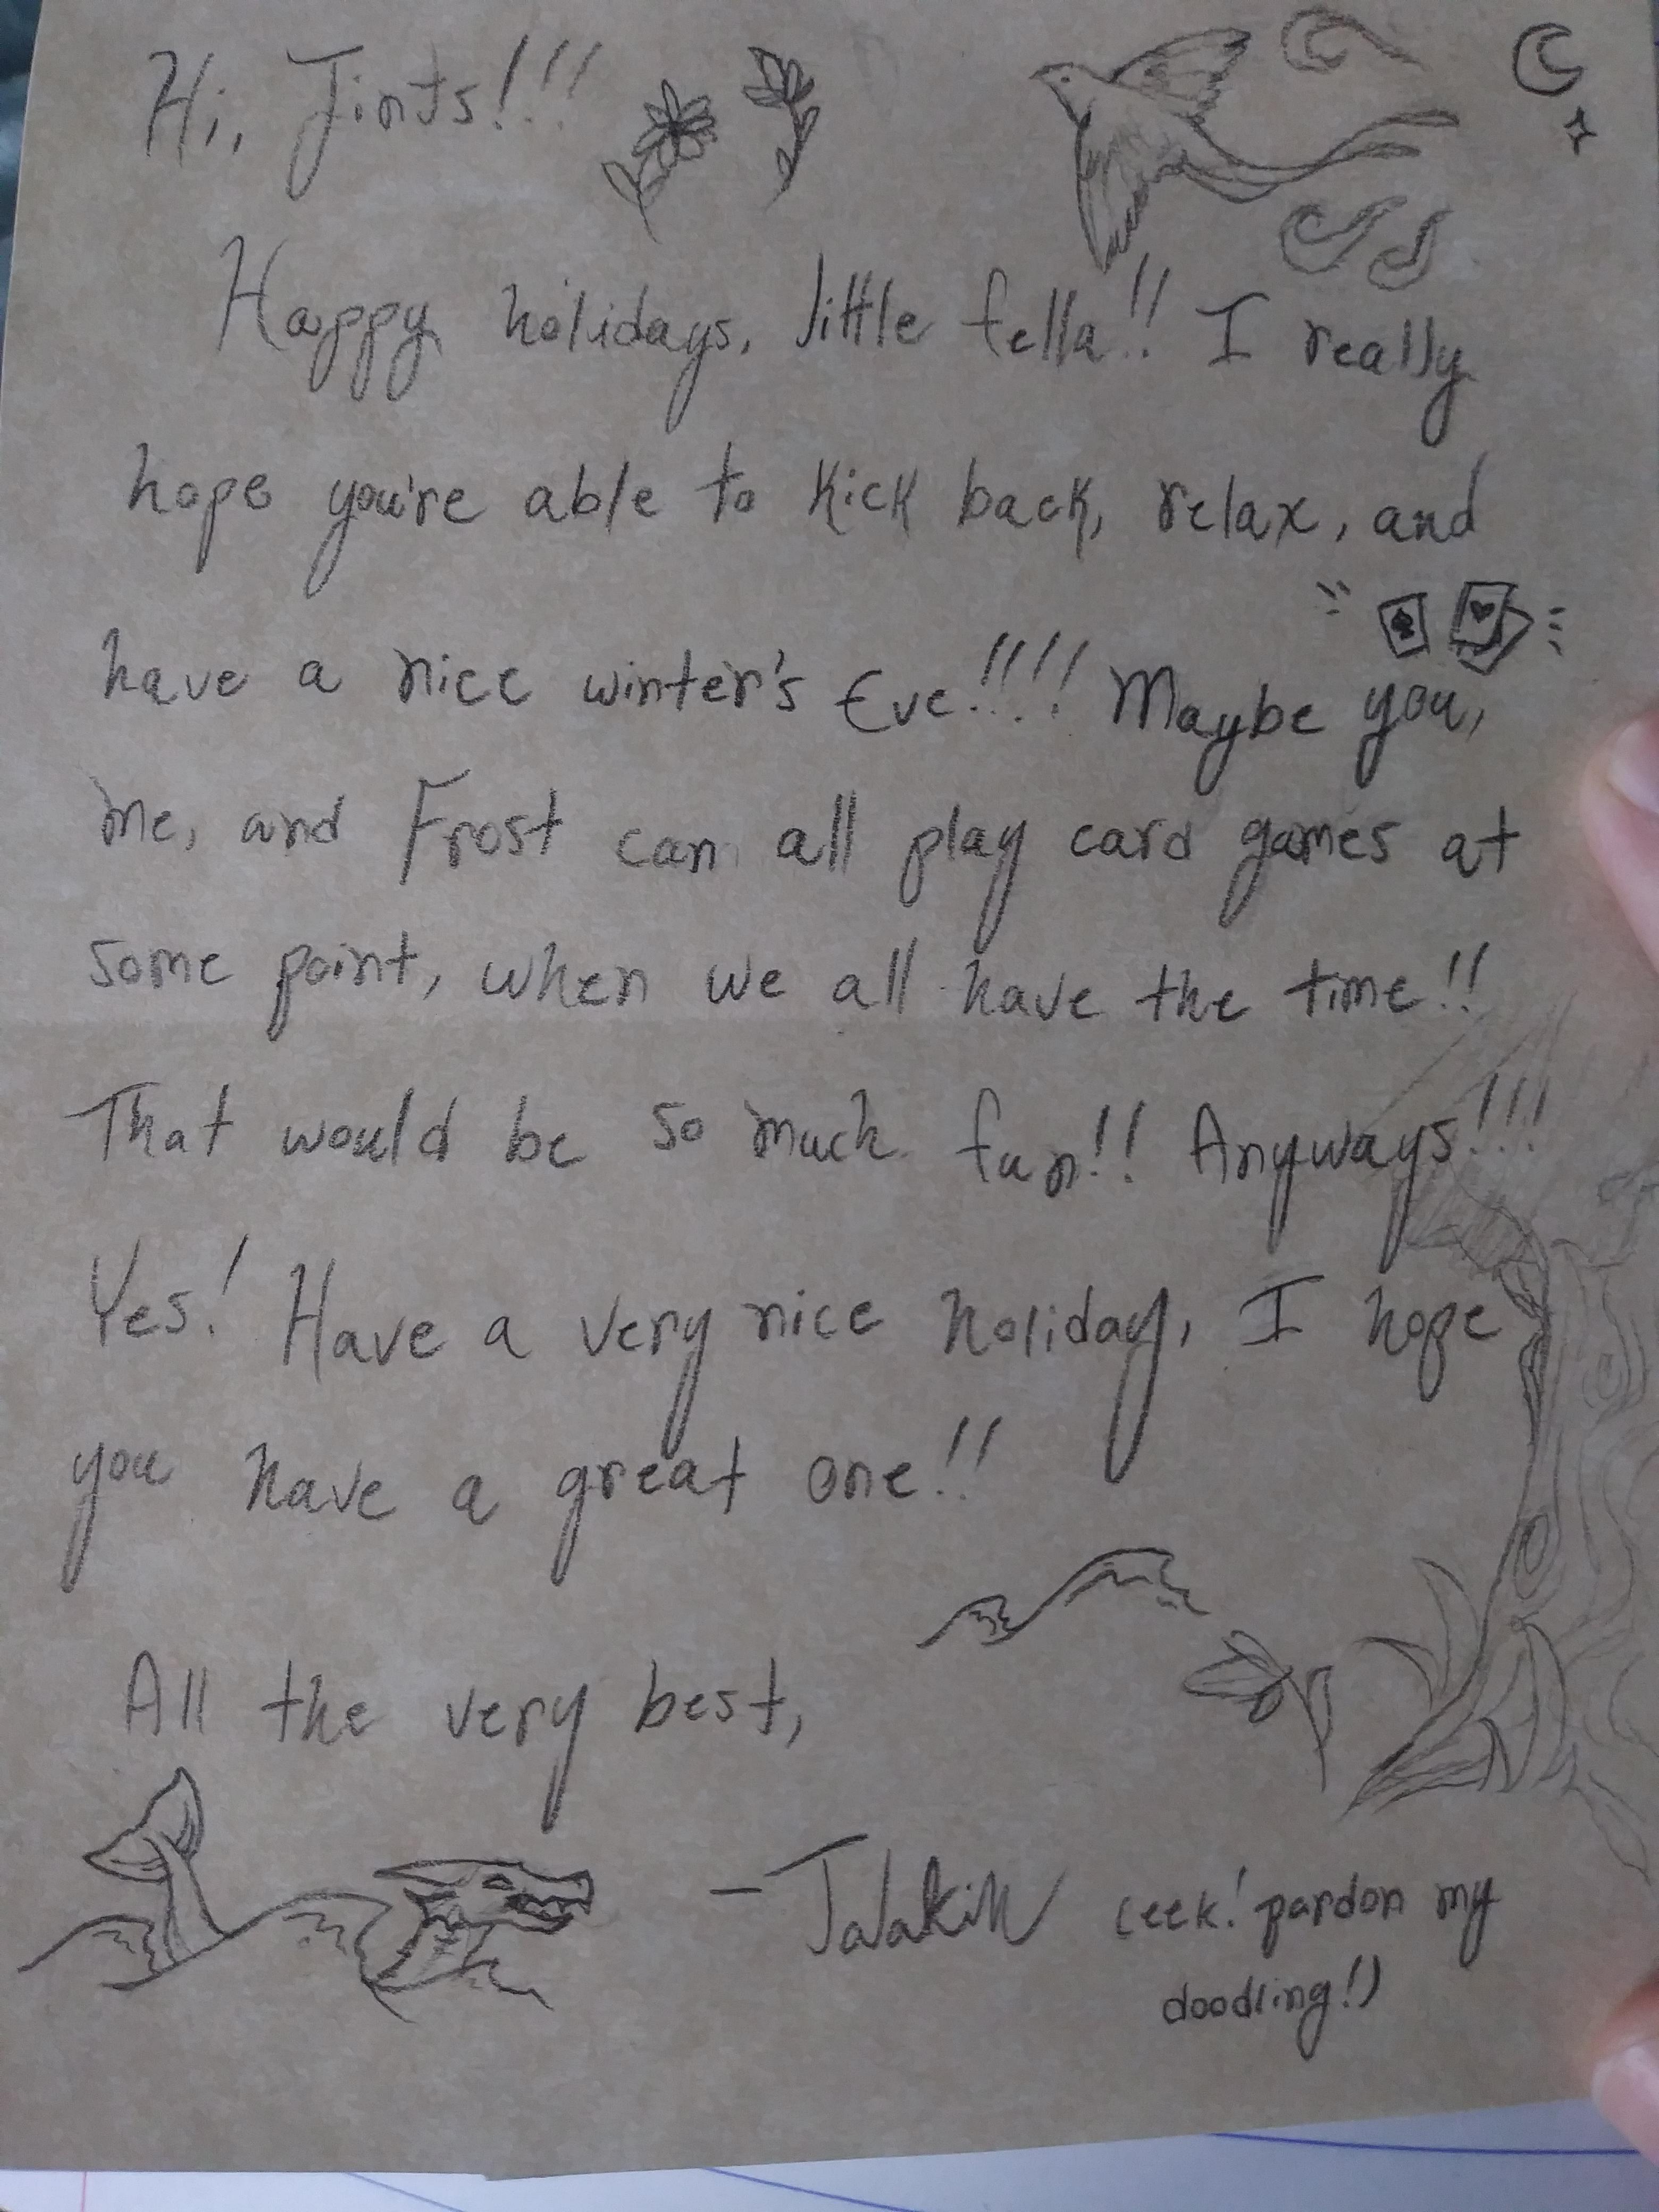 Hi, Jints!!!
Happy holidays, little fella!! I really
hope you're able to kick back, relax, and
have a nice winter's Eve!!!! Maybe you,
me, and Frost can all play card games at
some point, when we all have the time!!
That would be so much fun!! Anyways!!!
Yes! Have a very nice holiday, I hope
you have a great one!!
All the very best,
- Jalakin (eek! pardon my
doodling!)